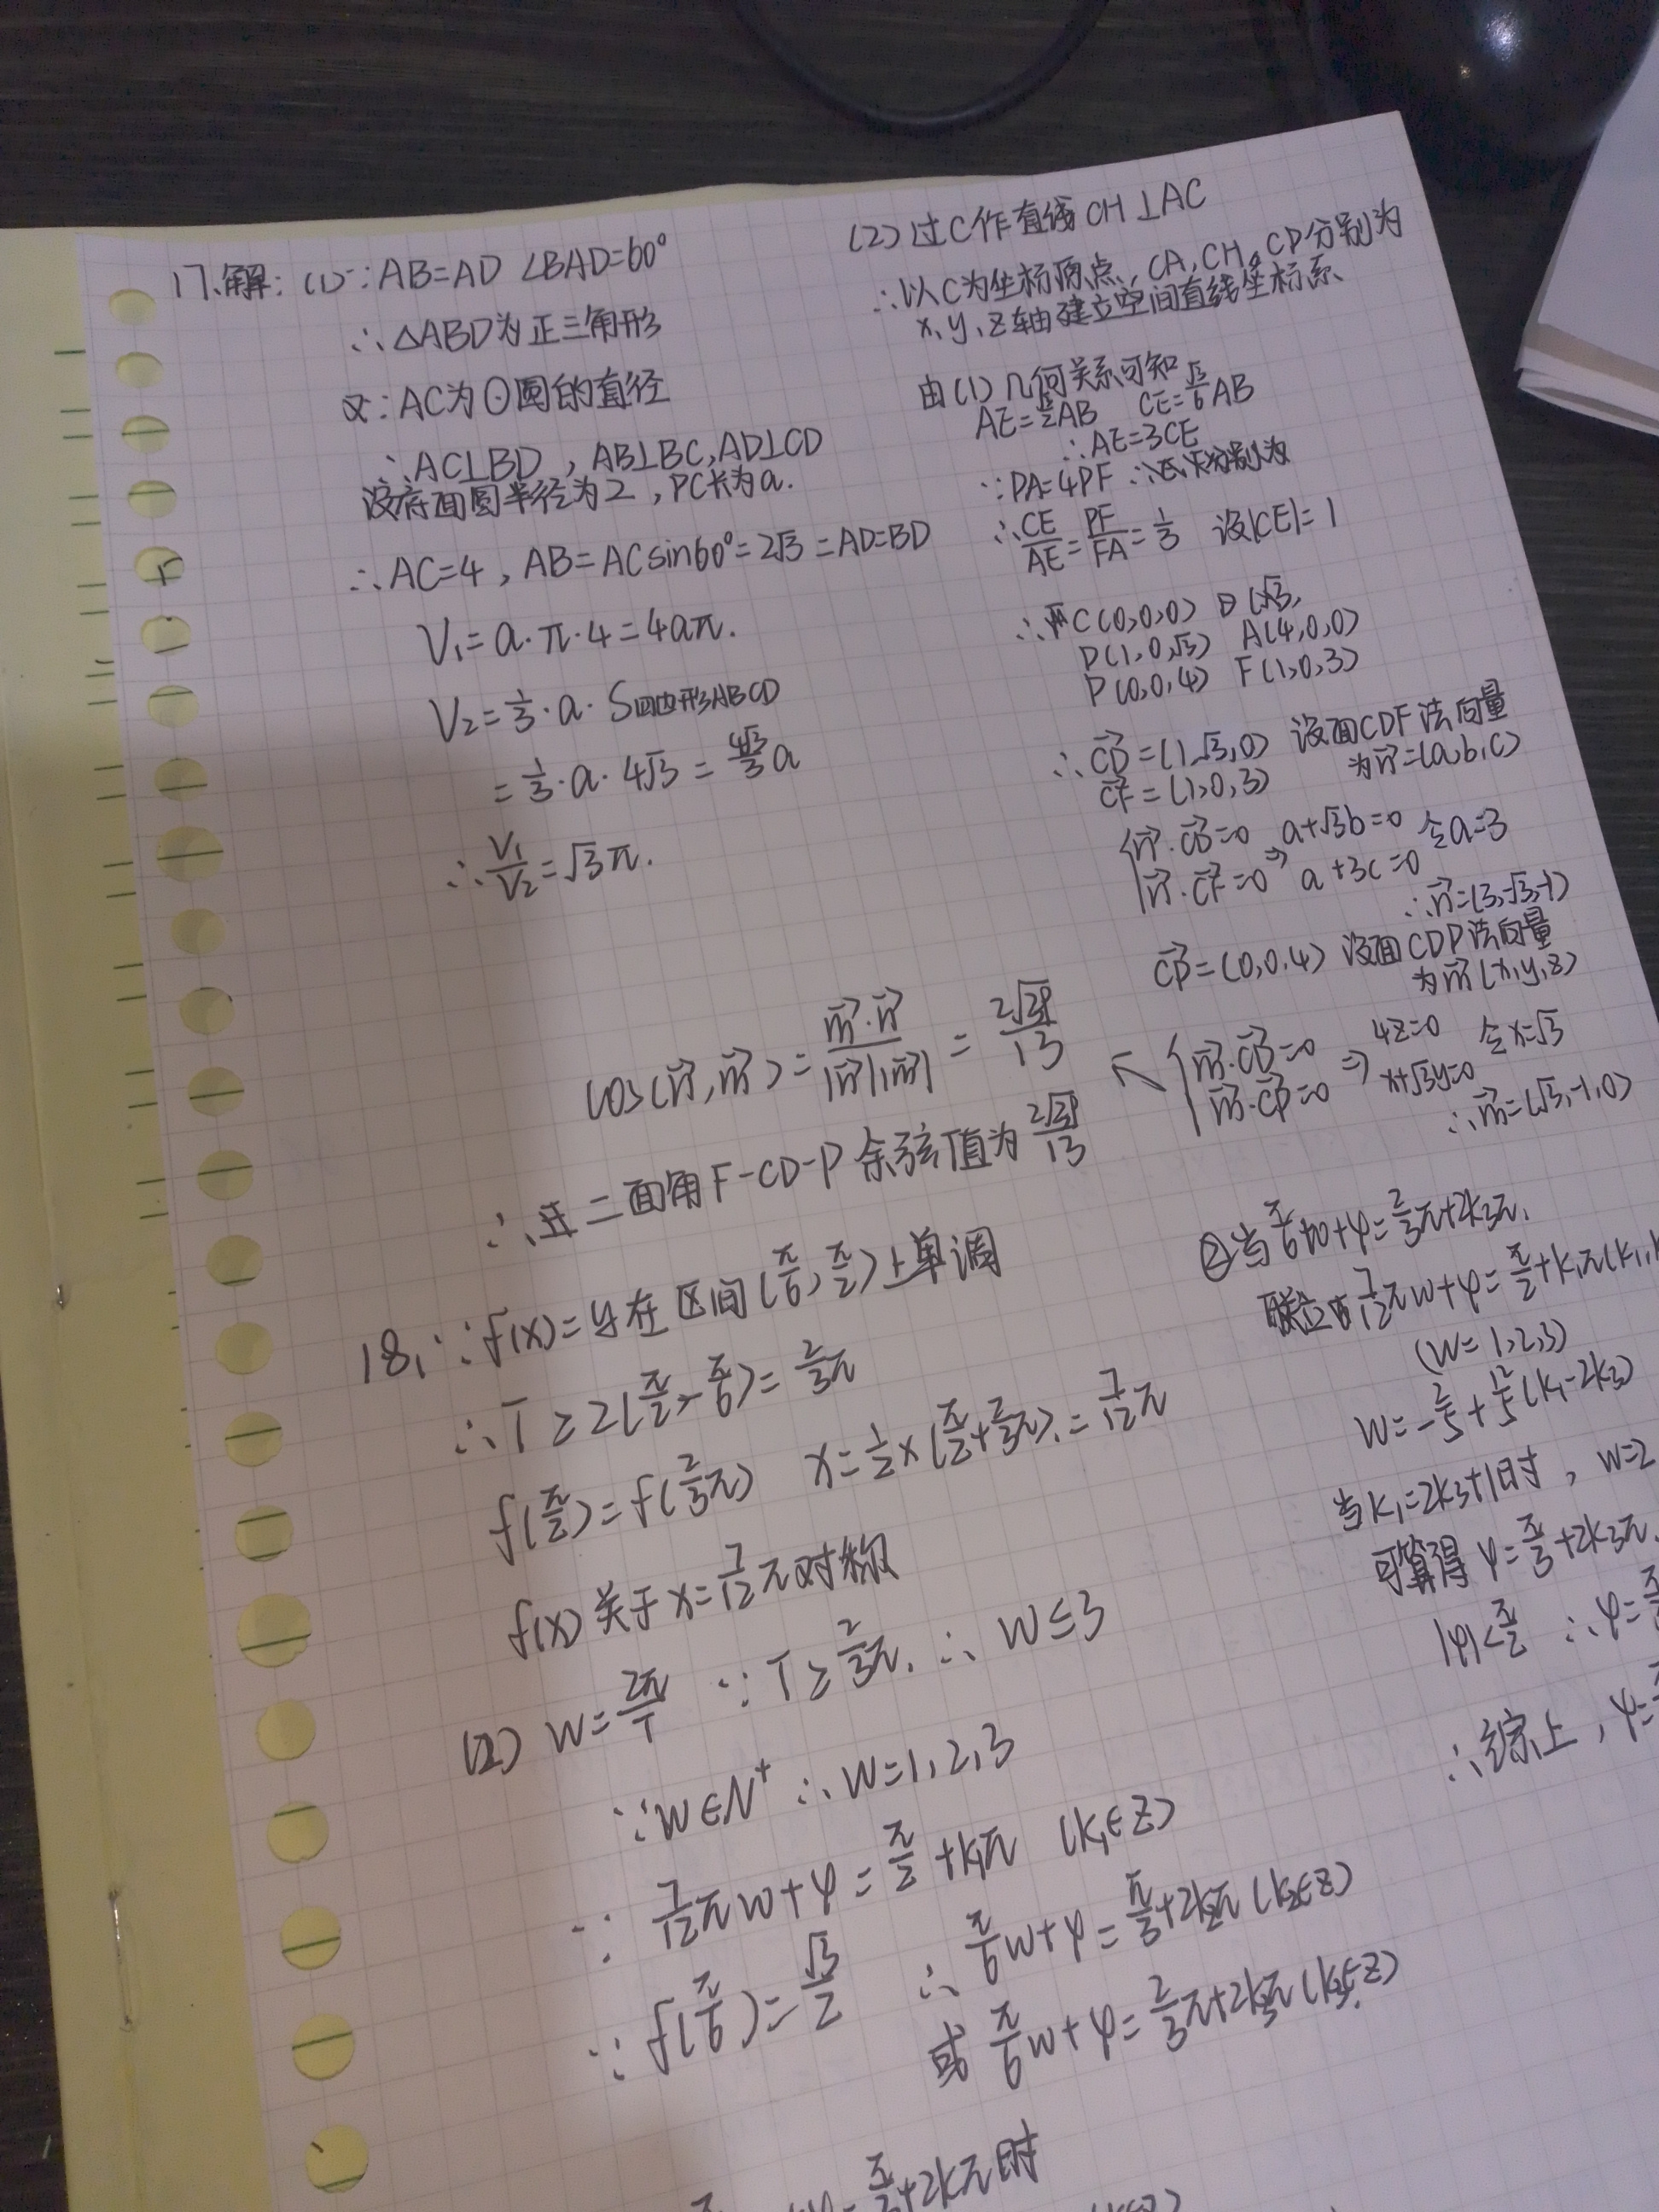 17.解: (1)∵AB=AD ∠BAD=60°
∴△ABD为正三角形
又∵AC为⊙圆的直径
∴AC⊥BD, AB⊥BC, AD⊥CD
设底面圆半径为2, PC长为a.
∴AC=4, AB=ACsin60°=2√3=AD=BD
V₁=a·π·4=4aπ.
V₂=1/3·a·S四边形ABCD
=1/3·a·4√3=4√3/3 a
∴V₁/V₂=√3π.
(2)过C作直线CH⊥AC
∴以C为坐标原点, CA, CH, CP分别为
x, y, z轴建立空间直线坐标系
由(1)几何关系可知
AE=√3/2AB CE=√3/6AB
∴AE=3CE
∵PA=4PF
∴CE/AE=PF/FA=1/3 设|CE|=1
∴C(0,0,0)
D(1,0,√3) A(4,0,0)
P(0,0,4) F(1,0,3)
∴CD→=(1,√3,0) 设面CDF法向量
CF→=(1,0,3) 为n→=(a,b,c)
{n→·CD→=0 a+√3b=0 令a=3
n→·CF→=0 ⇒ a+3c=0
∴n→=(3,-√3,-1)
CP→=(0,0,4) 设面CDP法向量
为m→(x,y,z)
{m→·CD→=0 4z=0 令x=√3
m→·CP→=0 ⇒ x+√3y=0
∴m→=(√3,-1,0)
cos(n→,m→)=m→·n→/|n→||m→|=2√39/13 ↖
∴二面角F-CD-P余弦值为2√39/13
18, ∵f(x)=y在区间(π/6,π/2)上单调
∴T≥2(π/2-π/6)=2/3π
f(π/2)=f(2/3π) x=1/2×(π/2+2/3π)=7/12π
f(x)关于x=7/12π对称
(2) w=2π/T ∵T≥2/3π, ∴w≤3
∵w∈N⁺ ∴w=1,2,3
∵7/12πw+φ=π/2+k₁π (k₁∈Z)
∵f(π/6)=√3/2 ∴π/6w+φ=π/3+2k₂π(k₂∈Z)
或π/6w+φ=2/3π+2k₃π(k₃∈Z)
+2kπ时
②当π/6w+φ=2/3π+2k₃π,
联立7/12πw+φ=π/2+k₁π(k₁,
(w=1,2,3)
w=-2/5+12/5(k₁-2k₃)
当k₁=2k₃+1时, w=2
可算得φ=π/3+2k₃π,
|φ|<π/2 ∴φ=
∴综上, φ=